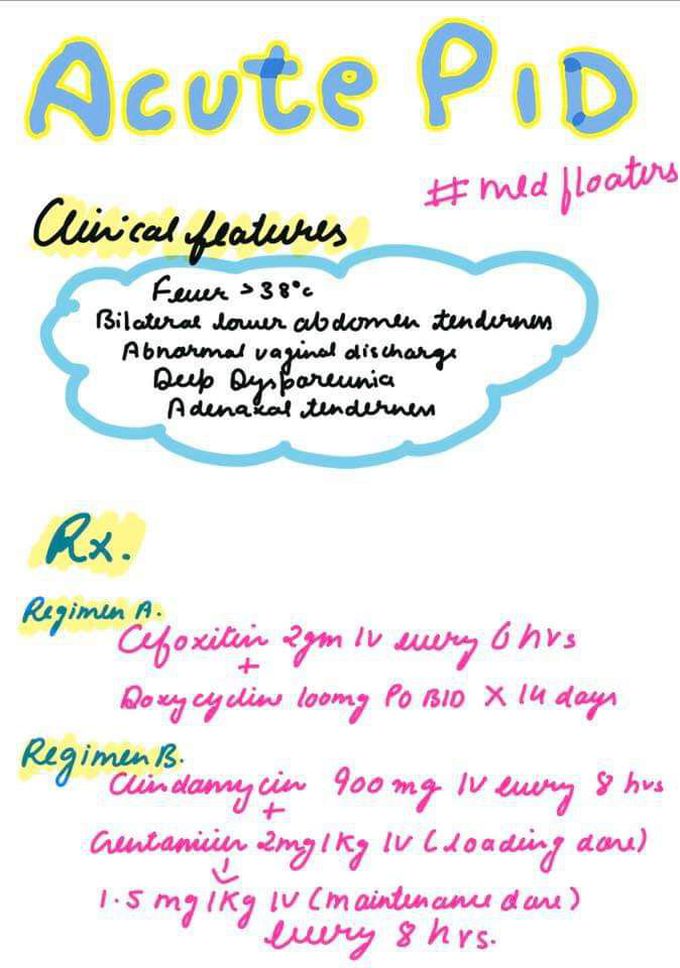 Acute PID
# med floaters
Clinical features
Fever >38°c
Bilateral lower abdomen tenderness
Abnormal vaginal discharge
Deep Dyspareunia
Adenaxal tenderness
Rx.
Regimen A.
Cefoxitin 2gm IV every 6 hrs
+
Doxycycline 100mg PO BID X 14 days
Regimen B.
Clindamycin 900 mg IV every 8 hrs
+
Gentamicin 2mg/kg IV (loading dose)
↓
1.5 mg/kg IV (maintenance dose)
every 8 hrs.